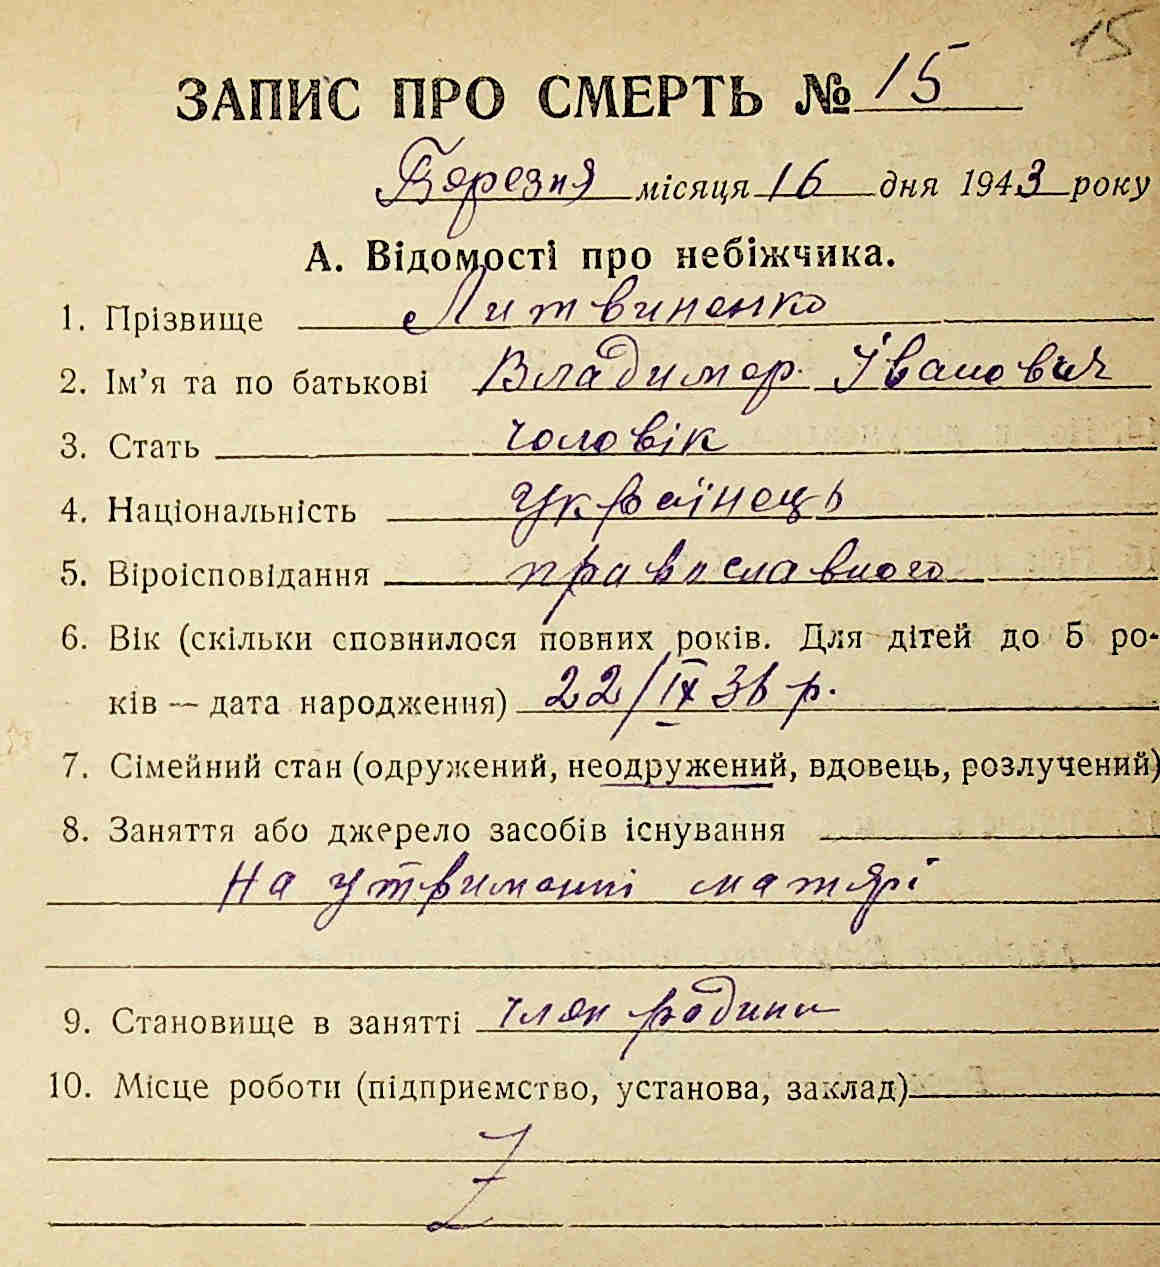 15
ЗАПИС ПРО СМЕРТЬ № 15
Березня місяця 16 дня 1943 року
А. Відомості про небіжчика.
1. Прізвище Литвиненко
2. Ім’я та по батькові Владимер. Іванович
3. Стать чоловік
4. Національність українець
5. Віроісповідання православного
6. Вік (скільки сповнилося повних років. Для дітей до 5 ро-
ків — дата народження) 22/IX 36 р.
7. Сімейний стан (одружений, неодружений, вдовець, розлучений)
8. Заняття або джерело засобів існування
На утриманні матярі
9. Становище в занятті член родини
10. Місце роботи (підприємство, установа, заклад)